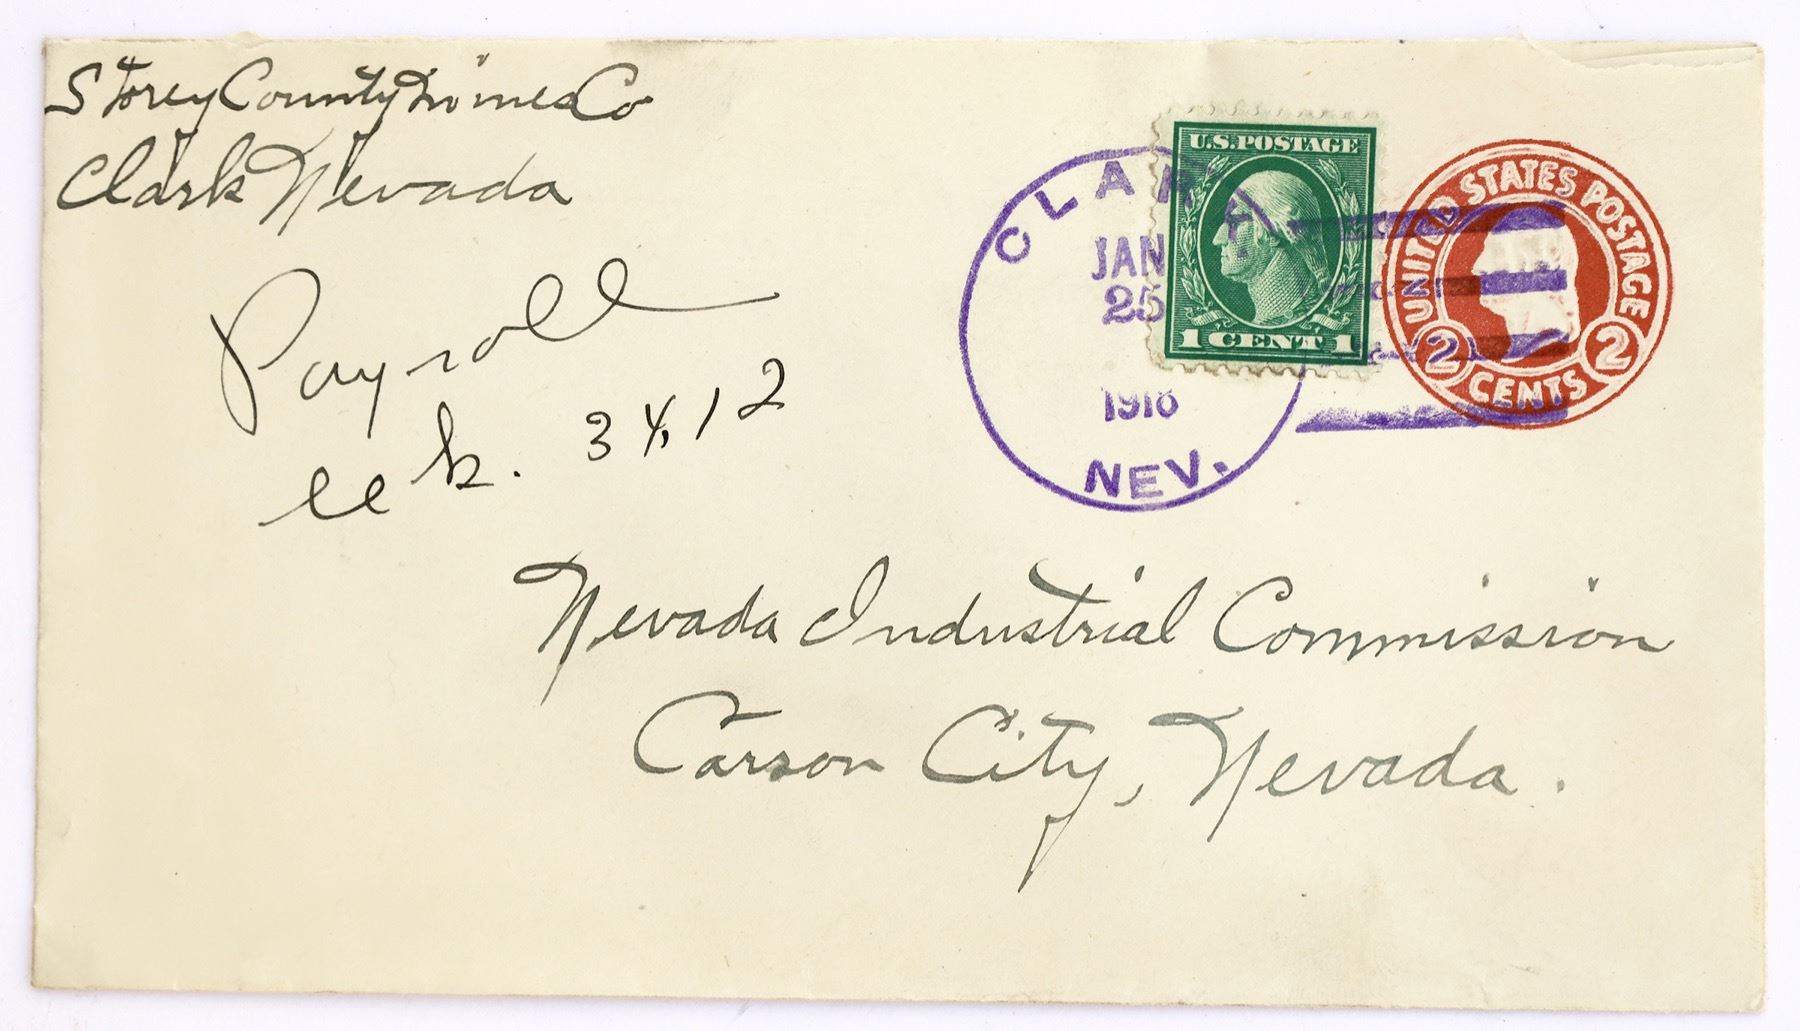 Storey County Mines Co
Clark Nevada
Payroll
ck. 34.12
CLARK
JAN
25
1918
NEV.
U.S. POSTAGE
1 CENT 1
UNITED STATES POSTAGE
2 CENTS 2
Nevada Industrial Commission
Carson City, Nevada.